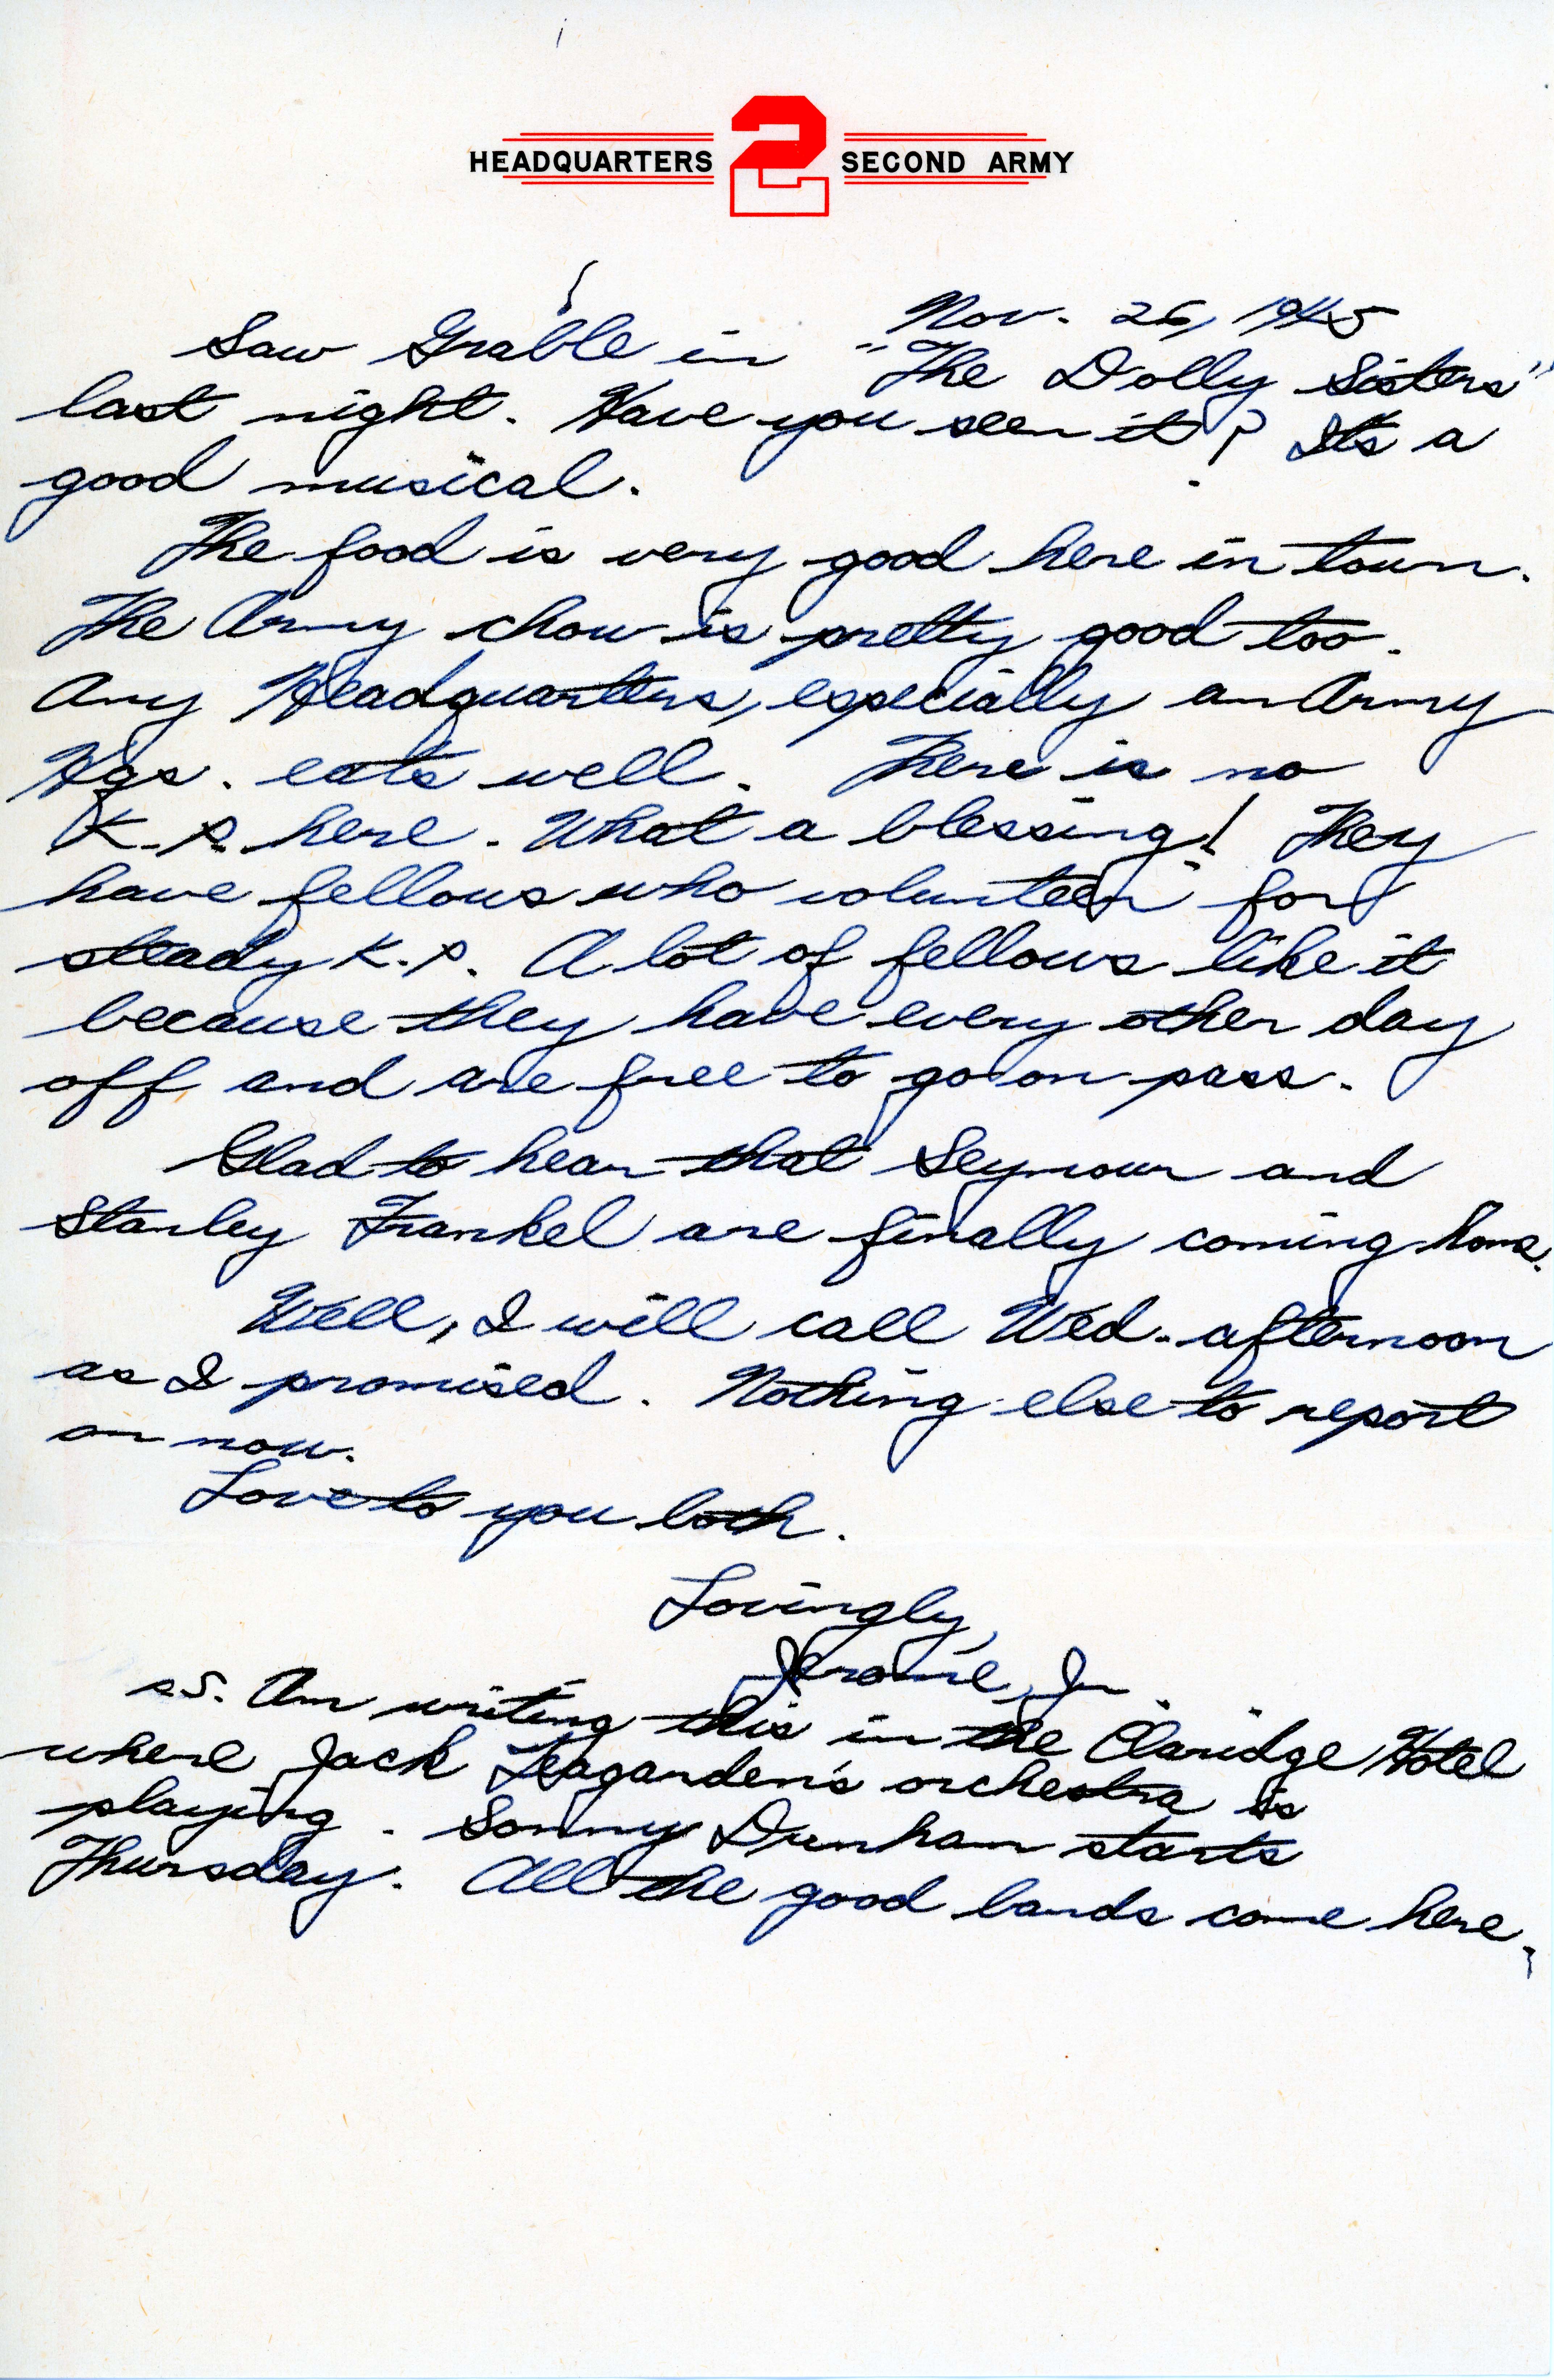 HEADQUARTERS 2 SECOND ARMY
Nov. 26, 1945
Saw Grable in "The Dolly Sisters"
last night. Have you seen it? It's a
good musical.
The food is very good here in town.
The Army chow is pretty good too.
Any Headquarters, especially an Army
Hqs. eats well. There is no
K.P. here. What a blessing! They
have fellows who volunteer for
steady K.P. A lot of fellows like it
because they have every other day
off and are free to go on pass.
Glad to hear that Seymour and
Stanley Frankel are finally coming home.
Well, I will call Wed. afternoon
as I promised. Nothing else to report
on now.
Love to you both.
Lovingly,
Jerome, Jr.
P.S. Am writing this in the Claridge Hotel
where Jack Teagarden's orchestra is
playing. Sonny Dunham starts
Thursday. All the good bands come here.